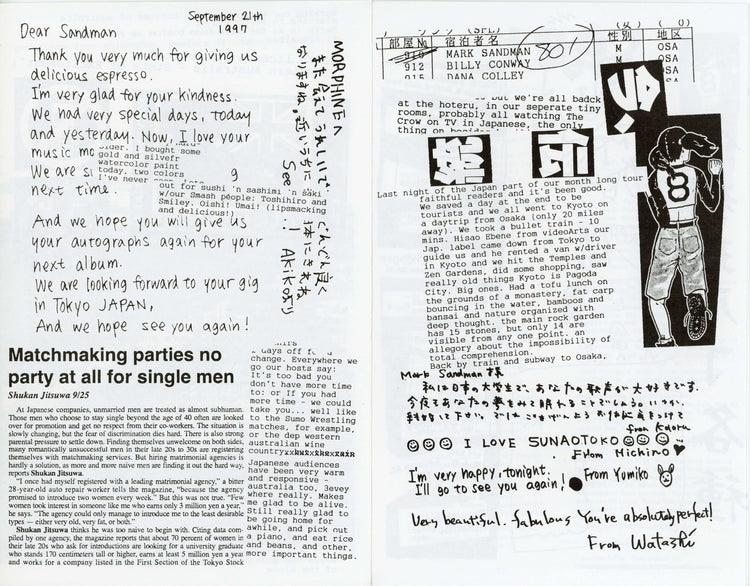 September 21th
1997
Dear Sandman
Thank you very much for giving us
delicious espresso.
I'm very glad for your kindness.
We had very special days, today
and yesterday. Now, I love your
music mo
sider. I bought some
gold and silvefr
watercolor paint
We are s
today, two colors
I've never
next time.
out for sushi 'n sashimi 'n saki
w/our Smash people: Toshihiro and
Smiley. Oishi! Umai! (lipsmacking
and delicious!)
And we hope you will give us
your autographs again for your
next album.
We are looking forward to your gig
in Tokyo JAPAN,
And we hope see you again!
MORPHINE へ
また会えてうれしいです
See
!
Akiko
Matchmaking parties no
party at all for single men
Shukan Jitsuwa 9/25
At Japanese companies, unmarried men are treated as almost subhuman.
Those men who choose to stay single beyond the age of 40 often are looked
over for promotion and get no respect from their co-workers. The situation is
slowly changing, but the fear of discrimination dies hard. There is also strong
parental pressure to settle down. Finding themselves unwelcome on both sides,
many romantically unsuccessful men in their late 20s to 30s are registering
themselves with matchmaking services. But hiring matrimonial agencies is
hardly a solution, as more and more naive men are finding it out the hard way,
reports Shukan Jitsuwa.
"I once had myself registered with a leading matrimonial agency," a bitter
28-year-old auto repair worker tells the magazine, "because the agency
promised to introduce two women every week." But this was not true. "Few
women took interest in someone like me who earns only 3 million yen a year,"
he says. "The agency could only manage to introduce me to the least desirable
types — either very old, very fat, or both."
Shukan Jitsuwa thinks he was naive to begin with. Citing data com-
piled by one agency, the magazine reports that about 70 percent of women in
their late 20s who ask for introductions are looking for a university graduate
who stands 170 centimeters tall or higher, earns at least 5 million yen a year
and works for a company listed in the First Section of the Tokyo Stock
2 days off for a
change. Everywhere we
go our hosts say:
It's too bad you
don't have more time
to: or If you had
more time - we could
take you... well like
to the Sumo Wrestling
matches, for example,
or the dep western
australian wine
country
Japanese audiences
have been very warm
and responsive -
australia too, 3evey
where really. Makes
me glad to be alive.
Still really glad to
be going home for
awhile, and pick out
a piano, and eat rice
and beans, and other,
more important things.
部屋№ 宿泊者名 性別 地区
910 MARK SANDMAN M OSA
801
912 BILLY CONWAY M OSA
915 DANA COLLEY OSA
but we're all badck
at the hoteru, in our seperate tiny
rooms, probably all watching The
Crow on TV in Japanese, the only
thing on besides
8
Last night of the Japan part of our month long tour
faithful readers and it's been good.
We saved a day at the end to be
tourists and we all went to Kyoto on
a daytrip from Osaka (only 20 miles
away). We took a bullet train - 10
mins. Hisao Ebene from videoArts our
Jap. label came down from Tokyo to
guide us and he rented a van w/driver
in Kyoto and we hit the Temples and
Zen Gardens, did some shopping, saw
really old things Kyoto is Pagoda
City. Big ones. Had a tofu lunch on
the grounds of a monastery, fat carp
bouncing in the water, bamboos and
bansai and nature organized with
deep thought. the main rock garden
has 15 stones, but only 14 are
visible from any one point. an
allegory about the impossibility of
total comprehension.
Back by train and subway to Osaka.
Mark Sandman 様
私は日本の大学生で、あなたの歌声が大好きです。
from Kaoru
I LOVE SUNAOTOKO
From Michiro
I'm very happy, tonight.
I'll go to see you again! From Yumiko
Very beautiful. fabulous You're absolutely perfect!
From Watashi